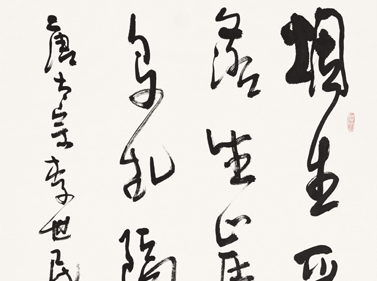 烟生
落半崖
鸟乱隔
唐太宗李世民